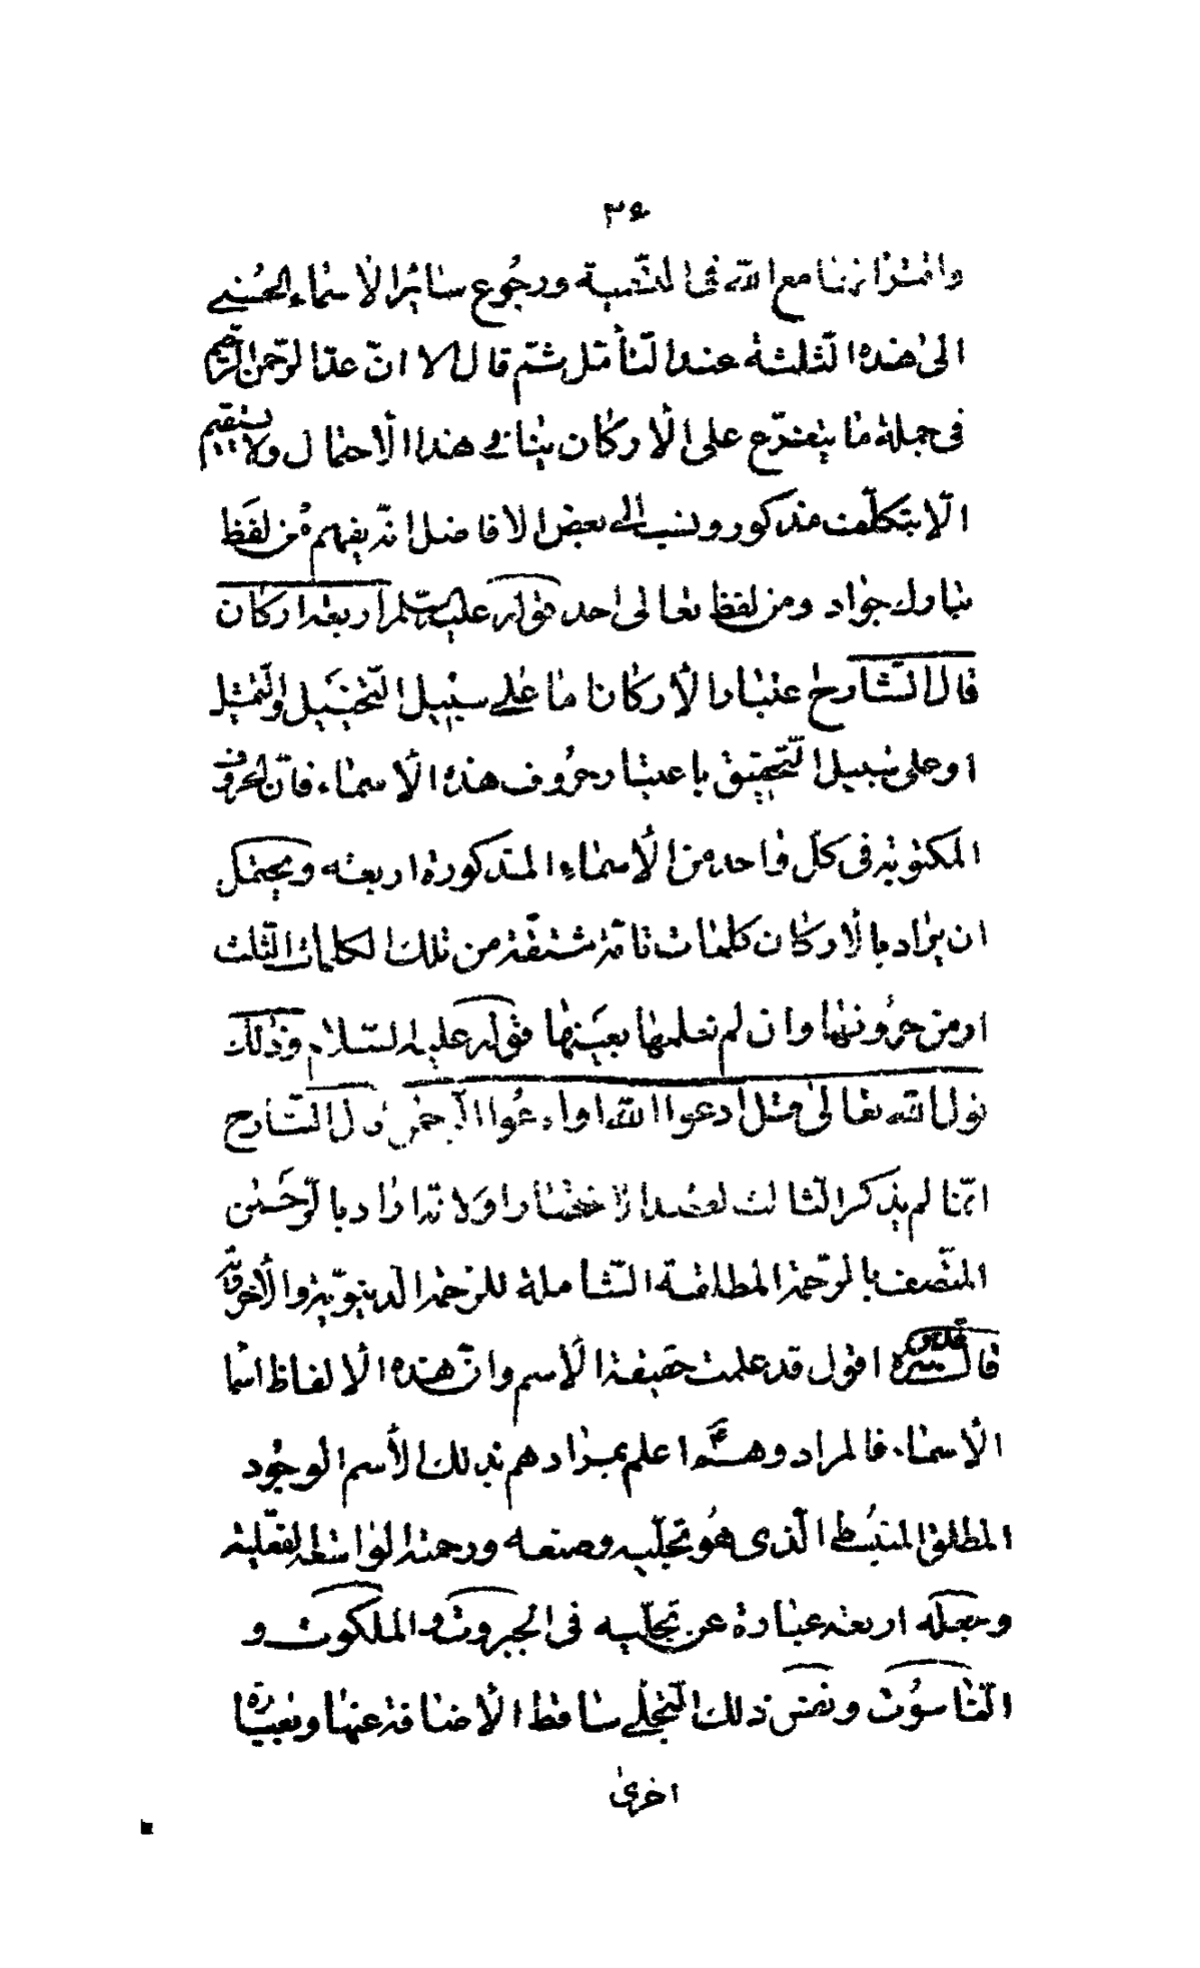 ٣۶
واقترانهما مع الله فى التسمية ورجوع سائر الأسماء الحسنى
الى هذه الثلثة عند التأمل ثم قال الا ان عد الرحمن الرحيم
فى جملة ما يتفرع على الأركان ينافى هذا الأحتمال ولا يستقيم
الّا بتكلّف مذكور ونسب الى بعض الافاضل انّه يفهم من لفظ
تبارك جواد ومن لفظ تعالى احد قوله عليه السّلم اربعة اركان
قال الشّارح اعتبار الأركان اما على سبيل التّخييل والتّمثيل
او على سبيل التّحقيق باعتبار حروف هذه الأسماء فانّ الحروف
المكتوبة فى كلّ واحد من الأسماء المذكورة اربعة ويحتمل
ان يراد بالاركان كلمات تامّة مشتقّة من تلك الكلمات الثّلث
او من حروفها وان لم نعلمها بعينها قوله عليه السّلام وذلك
قول الله تعالى قل ادعوا الله او ادعوا الرّحمن قال الشّارح
انّما لم يذكر الثّالث لقصد الاختصار او لانّه اراد بالرّحمن
المتّصف بالرّحمة المطلقة الشّاملة للرّحمة الدّنيويّة والأخرويّة
قال قدّس سرّه اقول قد علمت حقيقة الأسم وانّ هذه الألفاظ اسماء
الأسماء فالمراد وهم ع اعلم بمرادهم بذلك الأسم الوجود
المطلق المنبسط الّذى هو تجلّيه وصنعه ورحمته الواسطة الفعلية
وجعله اربعة عبارة عن تجلّيه فى الجبروت والملكوت و
النّاسوت ونفس ذلك التجلّى ساقط الأضافة عنها وبعبارة
اخرى